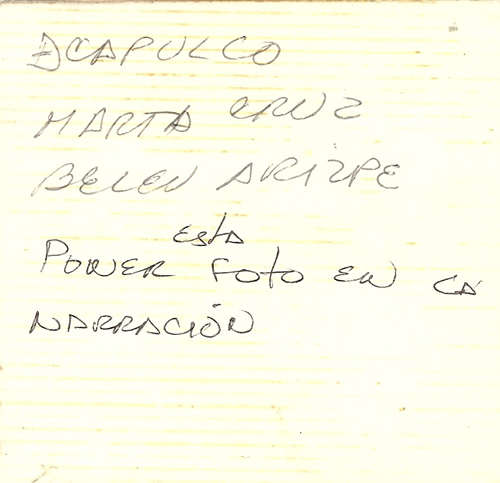 ACAPULCO
MARTA CRUZ
BELEN ARIZPE
PONER esta FOTO EN LA
NARRACIÓN